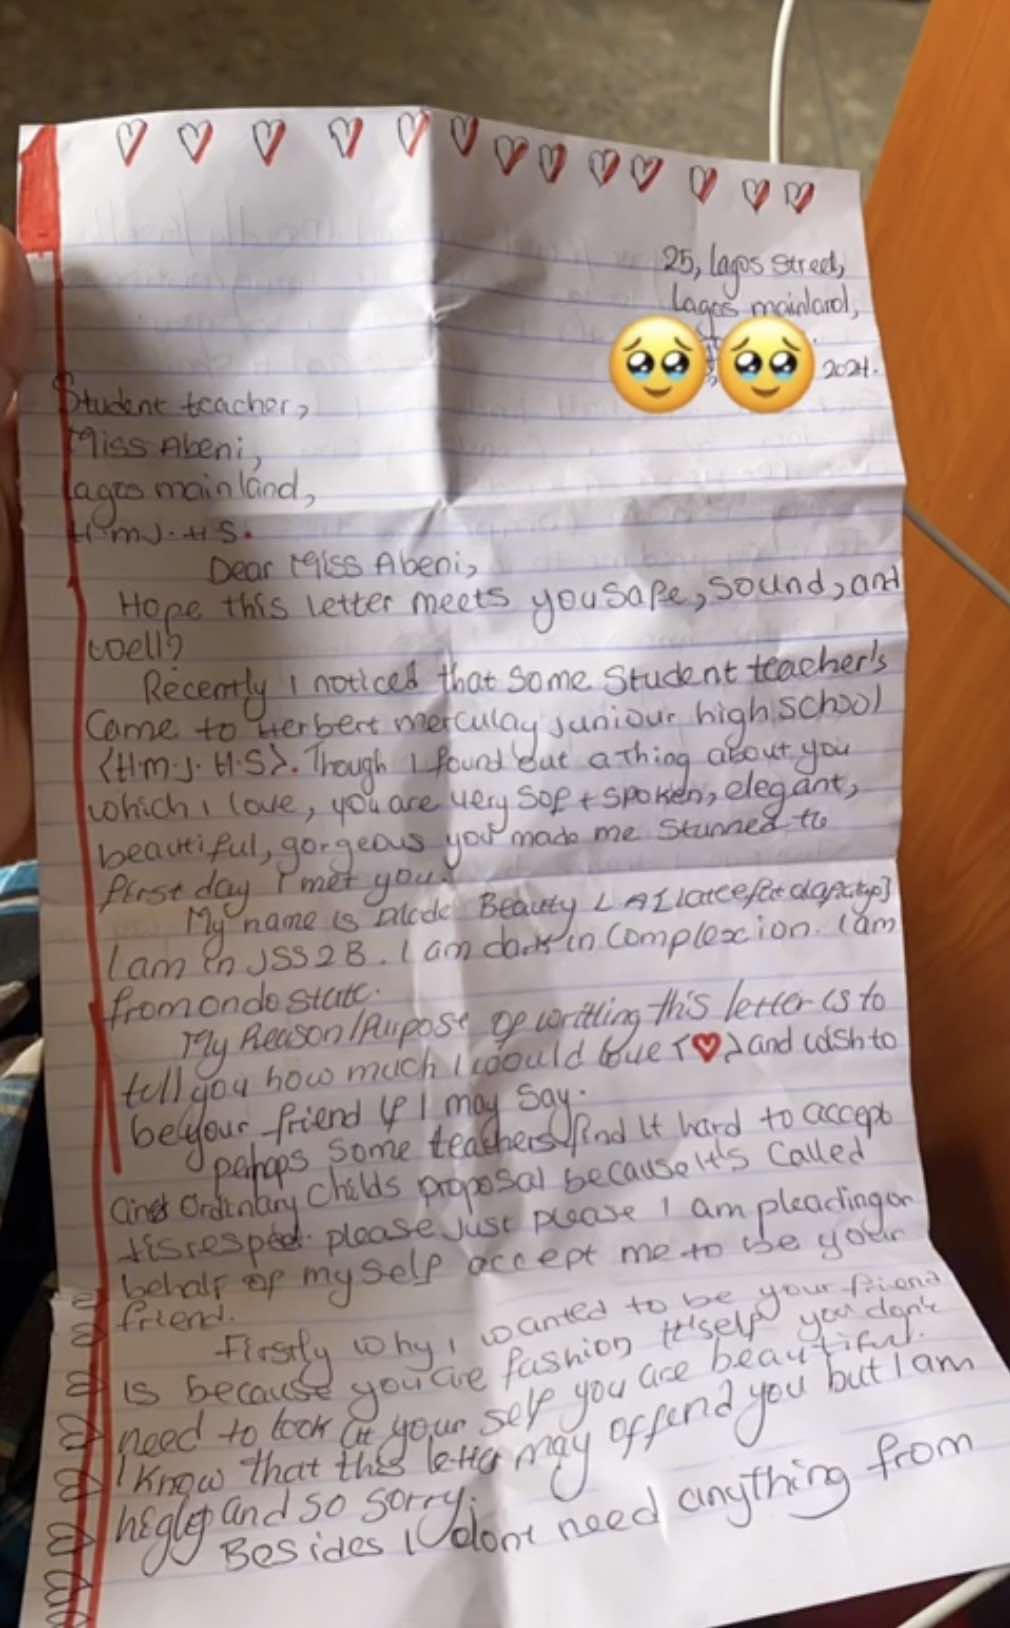 25, Lagos street,
Lagos mainland,
2024.
Student teacher,
Miss Abeni,
Lagos mainland,
H.M.J.H.S.
Dear Miss Abeni,
Hope this letter meets you safe, sound, and
well?
Recently I noticed that some Student teacher's
Came to Herbert merculay juniour high school
<H.M.J.H.S>. Though I found out a thing about you
which I love, you are very soft spoken, elegant,
beautiful, gorgeous you made me stunned the
first day I met you.
My name is Beauty
I am in JSS2B. I am dark in Complexcion. I am
from ondo state.
My Reason/Purpose of writting this letter is to
tell you how much I would love <♥> and wish to
be your friend if I may say.
perhaps some teachers find it hard to accept
Ordinary Childs proposal because it's Called
disrespect. please just please I am pleading on
behalf of my self accept me to be your
friend.
Firstly why I wanted to be your friend
is because you are fashion it'self you don't
need to look at your self you are beautiful.
I know that this letter may offend you but I am
and so sorry.
Besides I dont need anything from